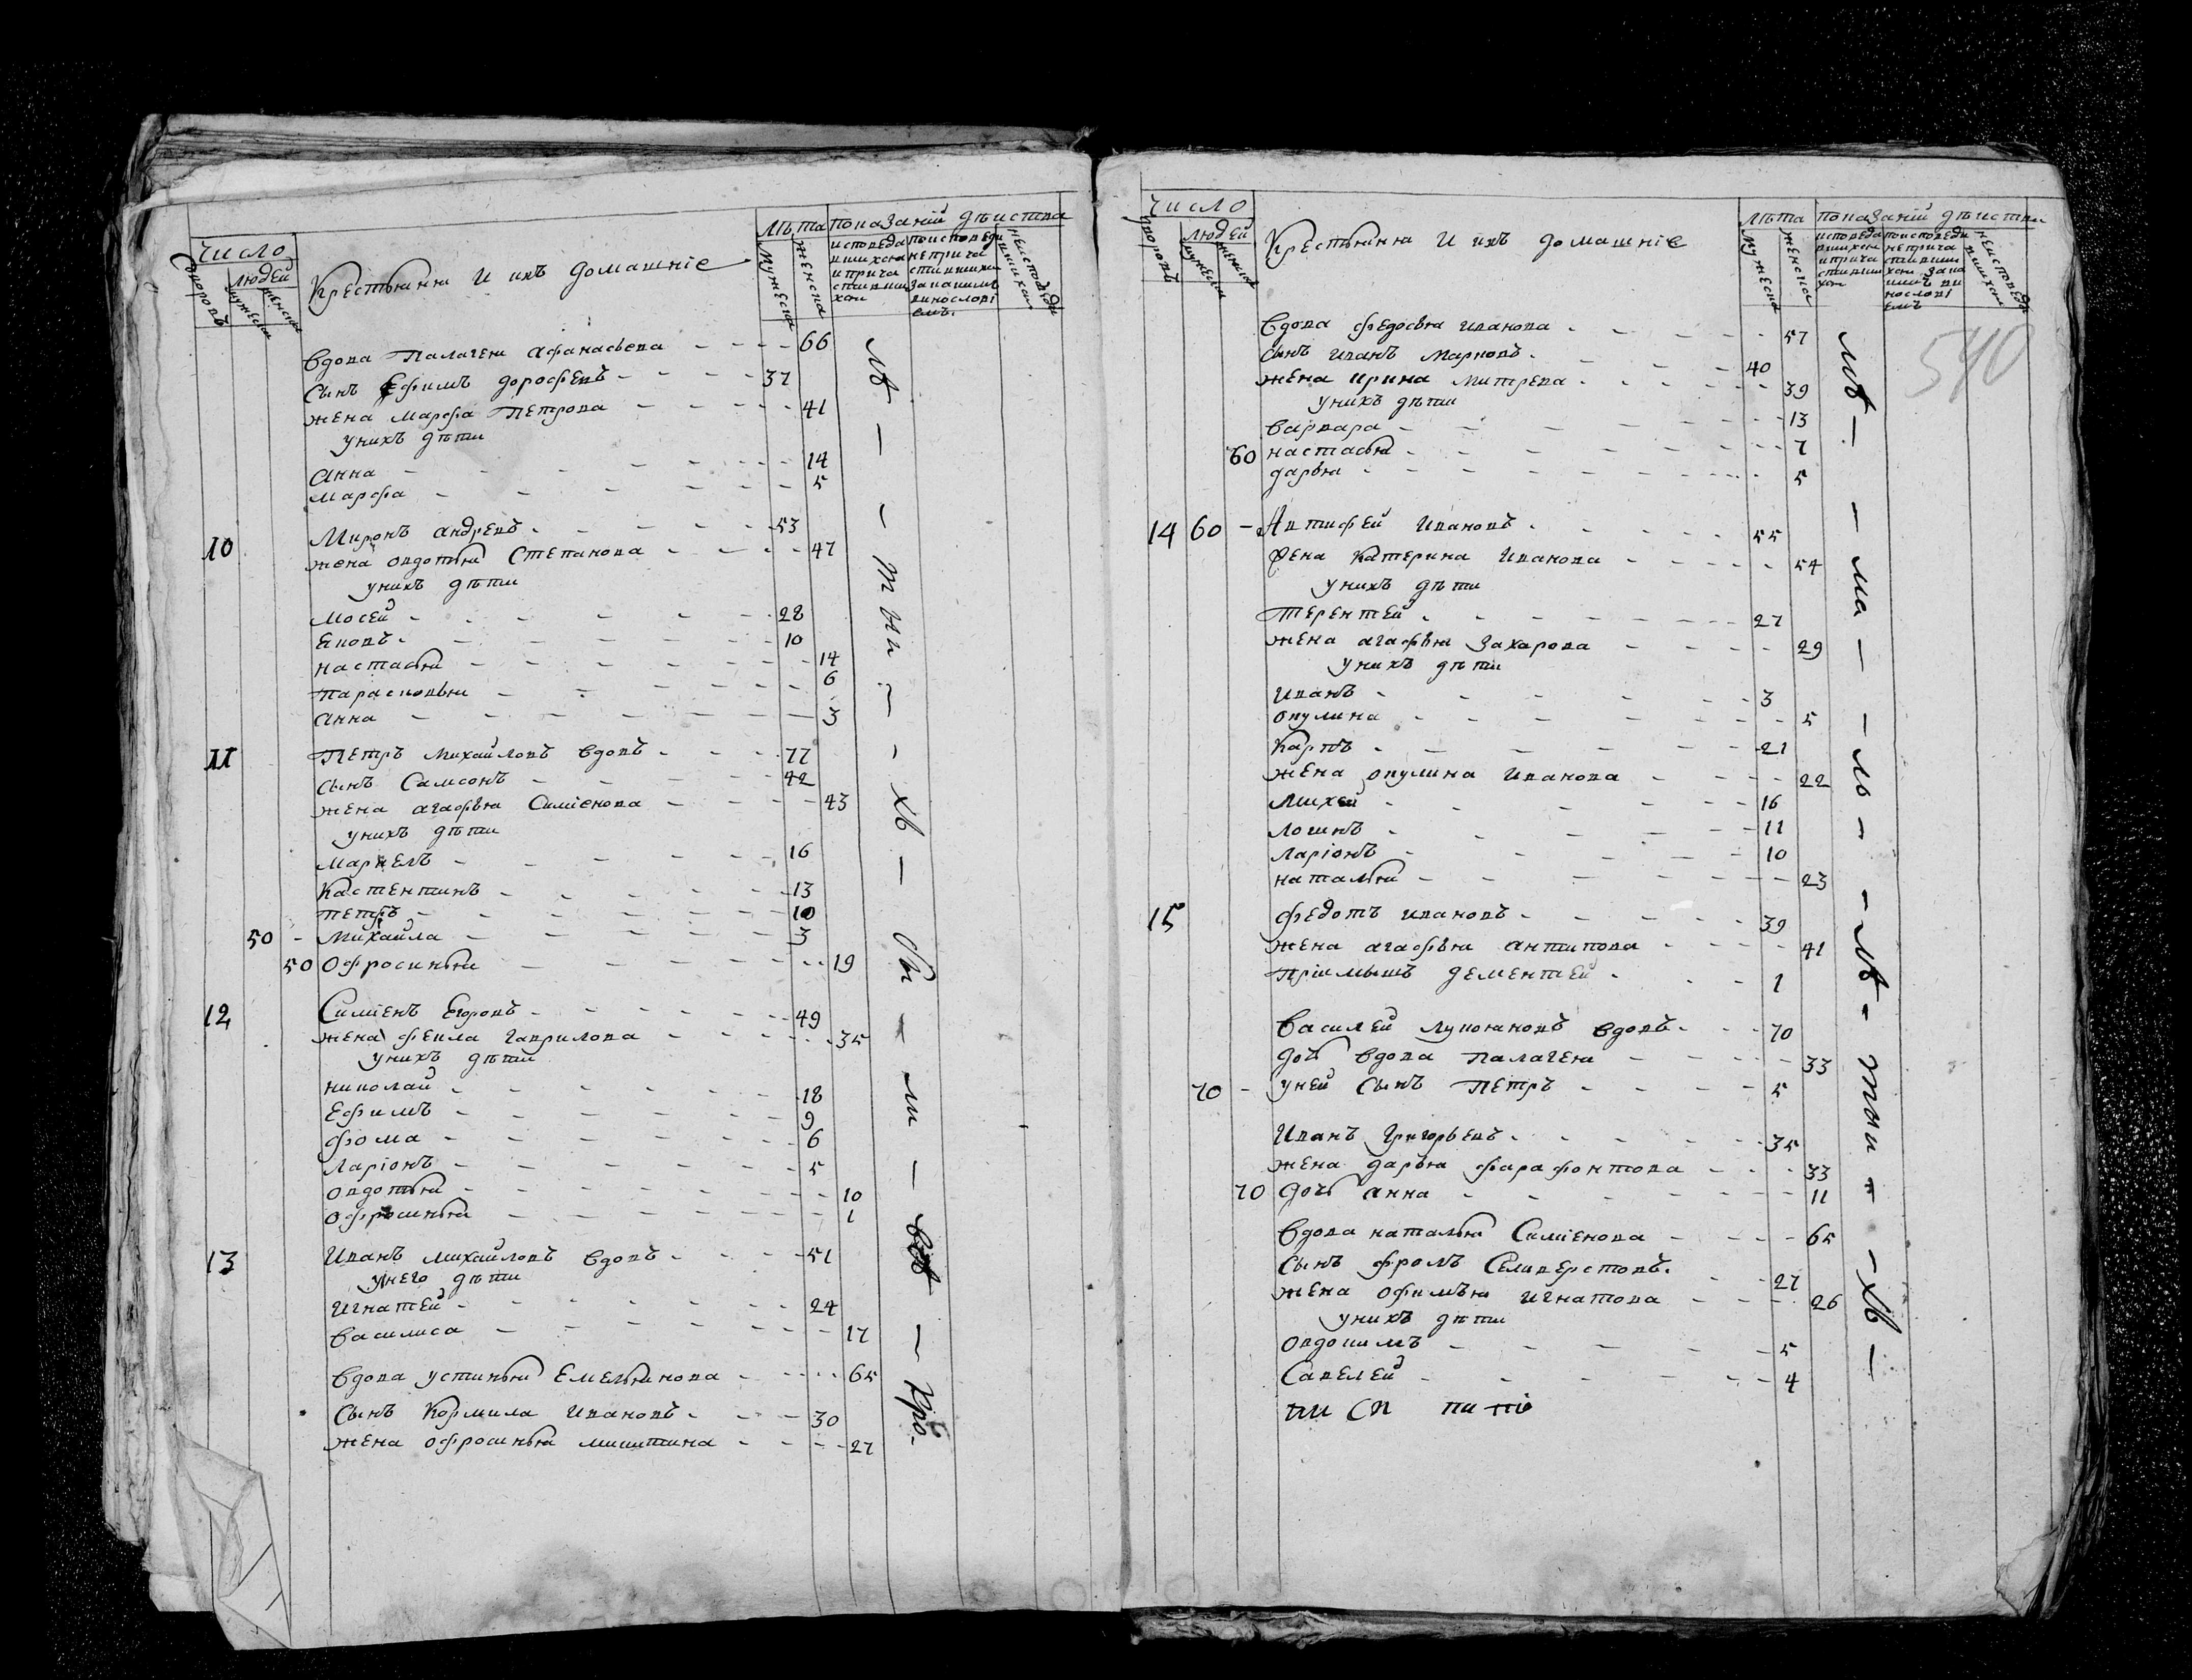 Число
людей
дворовъ
мужеска
женска
Крестьяня и ихъ домашнiе
лѣта
мужеска
женска
показанiй дѣиства
исповеда
вшихся
и прича
стивши
хся
по исповеди
не прича
стившихся
за какимъ
винословi
емъ
не исповеда
вшихся
вдова Палагея Афанасьева - - - - 66
Сынъ Ефимъ дорофеевъ - - - - 37
жена марфа Петрова - - - - 41
у нихъ дѣти
Анна - - - - - 14
марфа - - - - - 5
10 Миронъ андреевъ - - - - 53
жена овдотья Степанова - - - - 47
у нихъ дѣти
Мосей - - - - - 28
Яковъ - - - - - 10
настасья - - - - - 14
парасковья - - - - - 6
анна - - - - - 3
11 Петръ михайловъ вдовъ - - - 77
сынъ Самсонъ - - - - 42
жена агафья Симiенова - - - - 43
у нихъ дѣти
Маркелъ - - - - 16
Кастентинъ - - - - 13
петръ - - - - - 10
50 - михайла - - - - 3
50 Офросинья - - - - 19
12 Симiенъ Егоровъ - - - - 49
жена фекла гаврилова - - - - 35
у нихъ дѣти
николай - - - - - 18
Ефимъ - - - - - 9
фома - - - - - 6
ларiонъ - - - - - 5
овдотья - - - - - 10
офросинья - - - - - 1
13 Иванъ михайловъ вдовъ - - - - 51
у него дѣти
игнатей - - - - - 24
василиса - - - - - 17
вдова устинья Емельянова - - - - 65
Сынъ Кормила Ивановъ - - - 30
жена офросинья микитина - - - - 27
лѣ - - тни - - хъ
Число
людей
дворовъ
мужеска
женска
Крестьяня и ихъ домашнiе
лѣта
мужеска
женска
показанiй дѣиства
исповеда
вшихся
и прича
стивши
хся
по исповеди
не прича
стивши
хся за ка
кимъ ви
нословi
емъ
не исповеда
вшихся
540
вдова федосья иванова - - - - 57
сынъ иванъ марковъ - - - 40
жена ирина митрева - - - - 39
у нихъ дѣти
варвара - - - - - 13
60 настасья - - - - - 7
дарья - - - - - 5
14 60 - Автифей Ивановъ - - - - 55
жена Катерина Иванова - - - - 54
у нихъ дѣти
терентей - - - - - 27
жена агафья Захарова - - - - 29
у нихъ дѣти
иванъ - - - - - 3
окулина - - - - - 5
Карпъ - - - - - 21
жена окулина иванова - - - - 22
михей - - - - - 16
логинъ - - - - - 11
ларiонъ - - - - - 10
наталья - - - - - 23
15 федотъ ивановъ - - - - 39
жена агафья антипова - - - - 41
прiимышъ дементей - - - 1
василей лукояновъ вдовъ - - - 70
дочь вдова палагея - - - - 33
70 - у ней сынъ петръ - - - - 5
Иванъ григорьевъ - - - - 35
жена дарья фарафонтова - - - - 33
70 дочь анна - - - - - 11
вдова наталья Симiенова - - - - 65
Сынъ фролъ Селиверстовъ - - 27
жена офимья игнатова - - - - 26
у нихъ дѣти
овдокимъ - - - - - 5
Савелей - - - - - 4